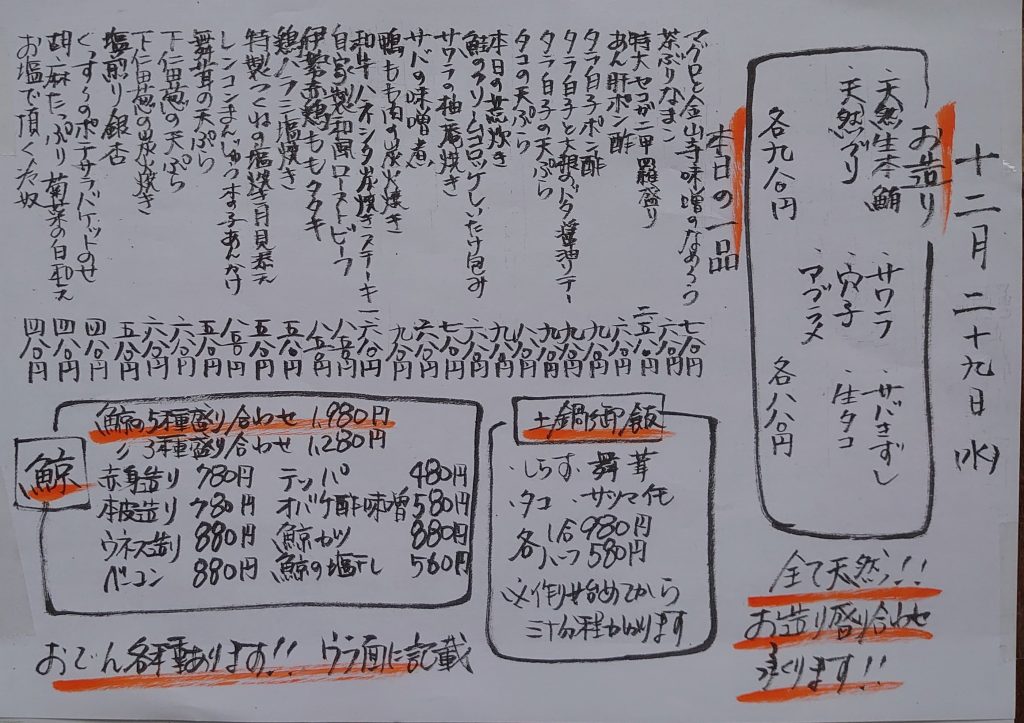 十二月二十九日(水)
お造り
・天然生本鮪
・天然ぶり
各九八〇円
・サワラ
・穴子
・アブラメ
・サバきずし
・生タコ
各八八〇円
全て天然!!
お造り盛り合わせ
承ります!!
本日の一品
マグロと金山寺味噌のなめろう 七八〇円
茶ぶりなまこ 六八〇円
特大セコガニ甲羅盛り 二五八〇円
あん肝ポン酢 六八〇円
タラ白子ポン酢 九八〇円
タラ白子と大根バター醤油ソテー 九八〇円
タラ白子の天ぷら 九八〇円
タコの天ぷら 八八〇円
本日の芸炊き 九八〇円
鮭のクリームコロッケしいたけ包み 六八〇円
サワラの柚庵焼き 七八〇円
サバの味噌煮 六八〇円
鴨もも肉の炭火焼き 九八〇円
和牛ハネシタ炭焼きステーキ 一六八〇円
自家製和風ローストビーフ 八八〇円
伊勢赤鶏ももタタキ 八八〇円
鶏ハラミ塩焼き 五八〇円
特製つくねの塩焼き月見添え 五八〇円
レンコンまんじゅう本子あんかけ 八八〇円
舞茸の天ぷら 五八〇円
下仁田葱の天ぷら 六八〇円
下仁田葱の炭焼き 六八〇円
塩煎り銀杏 五八〇円
ぐっすぅのポテサラバケットのせ 四八〇円
胡麻たっぷり菊菜の白和え 四八〇円
お塩で頂く冷奴 四八〇円
鯨
鯨の5種盛り合わせ 1,980円
〃 3種盛り合わせ 1,280円
赤身造り 780円
本皮造り 780円
ウネス造り 880円
ベーコン 880円
テッパ 480円
オバケ酢味噌 580円
鯨カツ 880円
鯨の塩干し 560円
土鍋御飯
・しらす ・舞茸
・タコ ・サツマイモ
各 1合 980円
ハーフ 580円
※作り始めてから
三十分程かかります
おでん各種あります!! ウラ面に記載